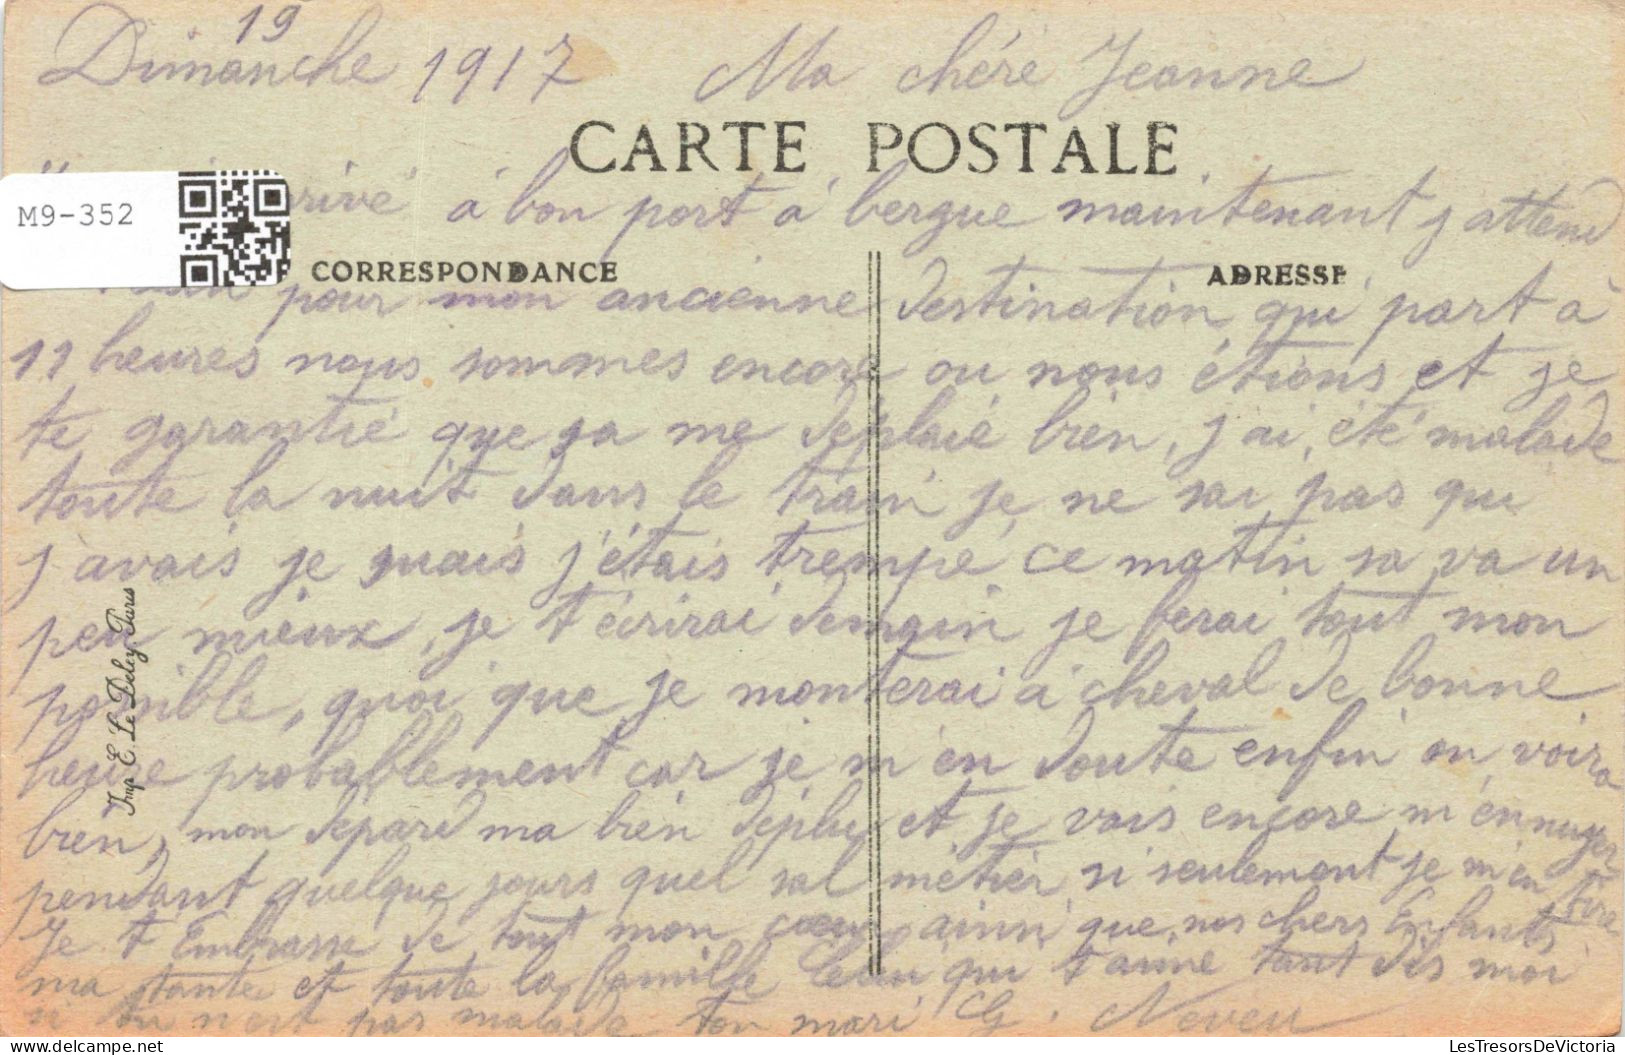 19
Dimanche 1917 Ma chére Jeanne
CARTE POSTALE
à bon port à bergue maintenant j attend
M9-352
CORRESPONDANCE ADRESSE
pour mon ancienne destination qui part à
11 heures nous sommes encore ou nous étions et je
te garantie que sa me déplaié bien, j ai été malade
toute la nuit dans le train je ne sai pas que
j avais je suais j'étais trempé ce matin sa va un
peu mieux, je t écrirai demain je ferai tout mon
possible, quoi que je monterai à cheval de bonne
heure probablement car je m en doute enfin on voira
bien, mon depard ma bien déplu et je vais encore m ennuyer
pendant quelque jours quel sal métier si seulement je m en tire
Je t Embrasse de tout mon cœur ainsi que nos chers Enfants
ma tante et toute la famille Celui qui t aime tant dis moi
si tu n est pas malade ton mari G. Neveu
Imp. E. Le Deley, Paris
LesTresorsDeVictoria